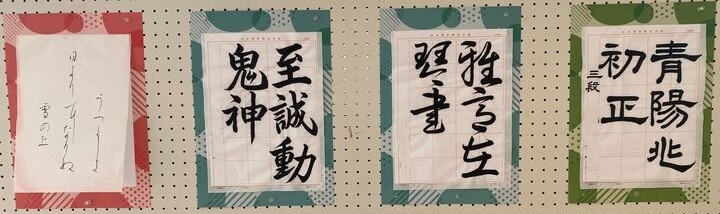 うつくしき
日よりになりぬ
雪の上
至誠動
鬼神
雅在
琴書
青陽兆
初正
三段